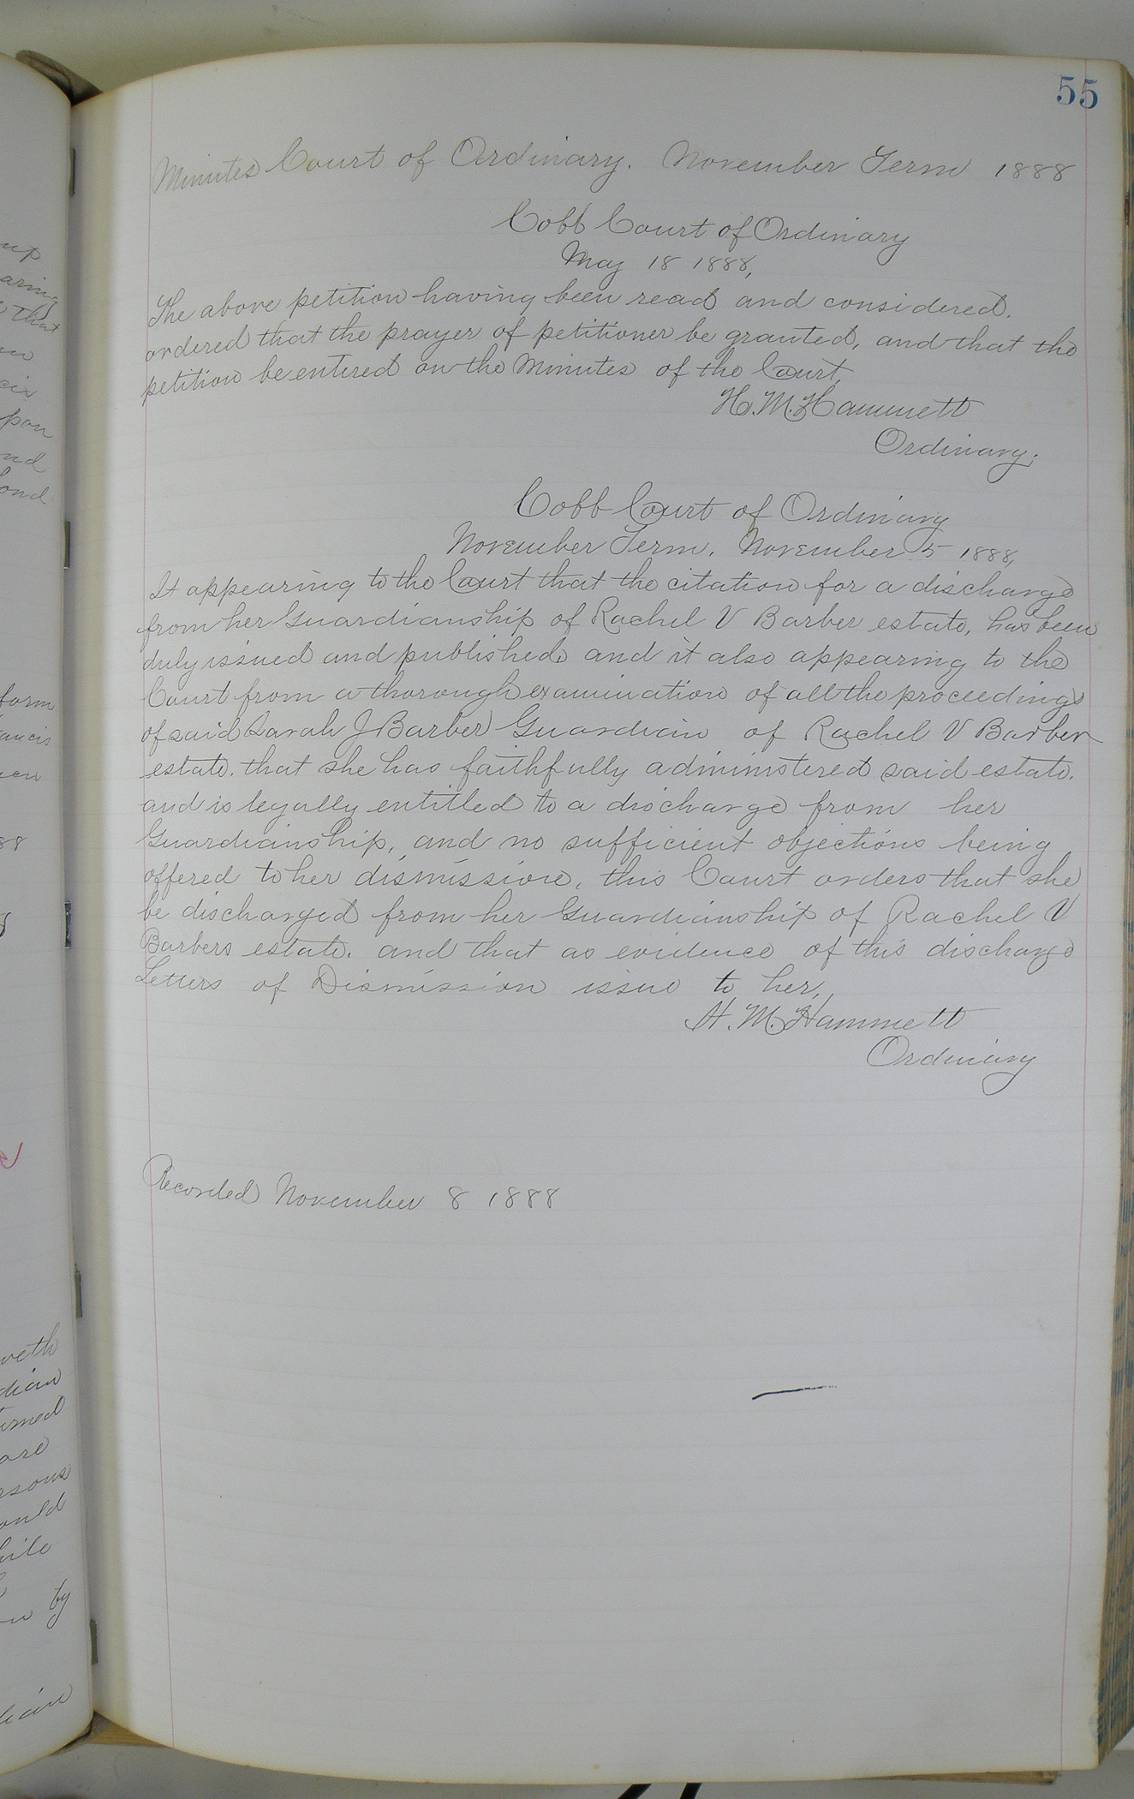 55
Minutes Court of Ordinary. November Term 1888
Cobb Court of Ordinary
May 18 1888,
The above petition having been read and considered.
ordered that the prayer of petitioner be granted, and that the
petition be entered on the Minutes of the Court,
H. M. Hammett
Ordinary;
Cobb Court of Ordinary
November Term, November 5 1888,
It appearing to the Court that the citation for a discharge
from her Guardianship of Rachel V Barber estate, has been
duly issued and published, and it also appearing to the
Court from a thorough examination of all the proceedings
of said Sarah J Barber Guardian of Rachel V Barber
estate. that she has faithfully administered said estate.
and is legally entitled to a discharge from her
Guardianship, and no sufficient objections being
offered to her dismission, this Court orders that she
be discharged from her Guardianship of Rachel V
Barbers estate. and that as evidence of this discharge
Letters of Dismission issue to her,
H. M. Hammett
Ordinary
Recorded November 8 1888
up
aring
that
six
upon
nd
ond
form
ancis
88
dian
are
rsons
ould
by
dian